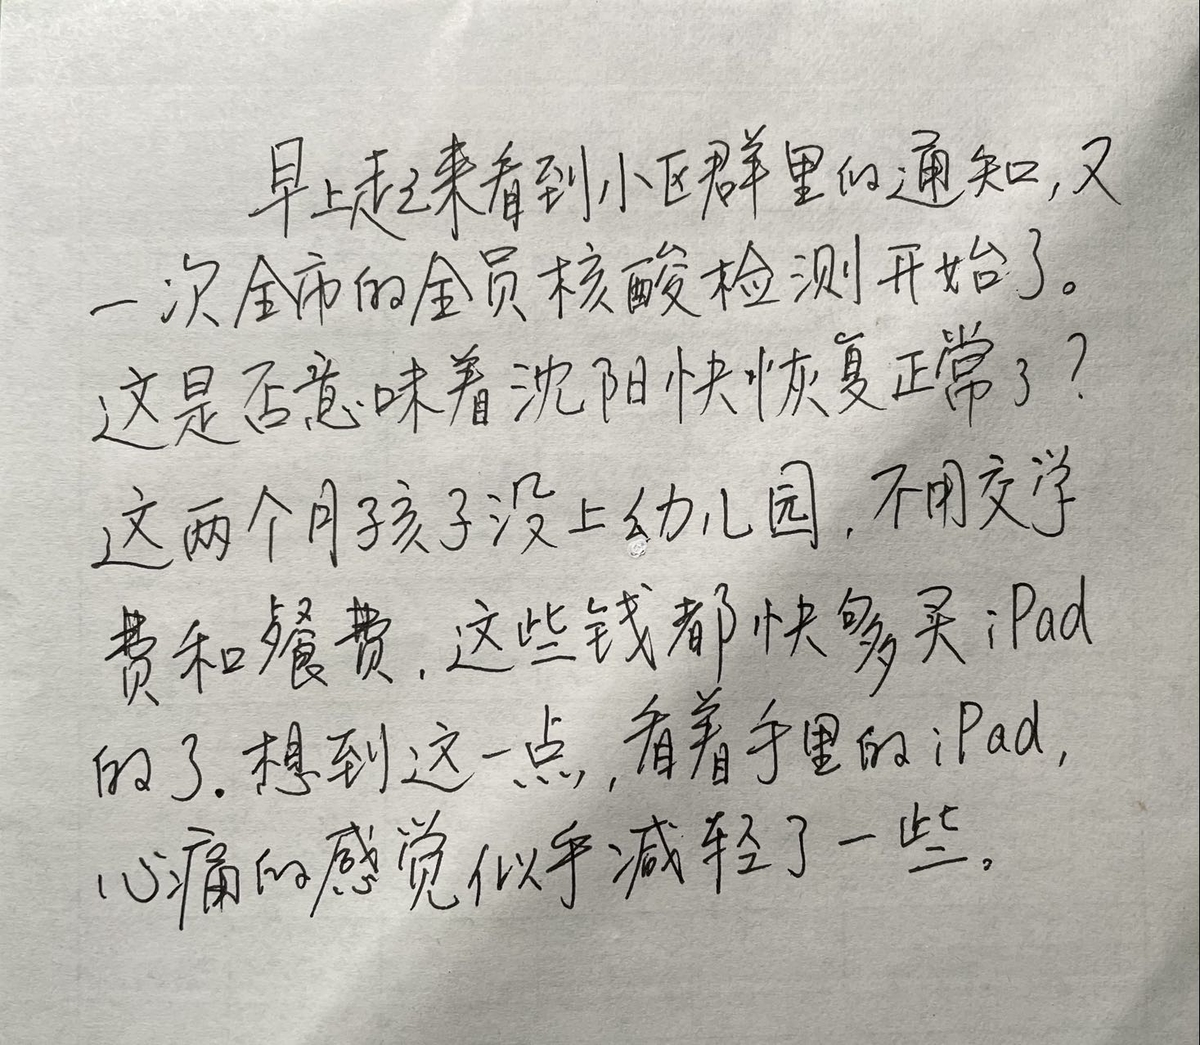 早上起来看到小区群里的通知,又
一次全市的全员核酸检测开始了。
这是否意味着沈阳快恢复正常了?
这两个月孩子没上幼儿园,不用交学
费和餐费,这些钱都快够买iPad
的了.想到这一点,看着手里的iPad,
心痛的感觉似乎减轻了一些。